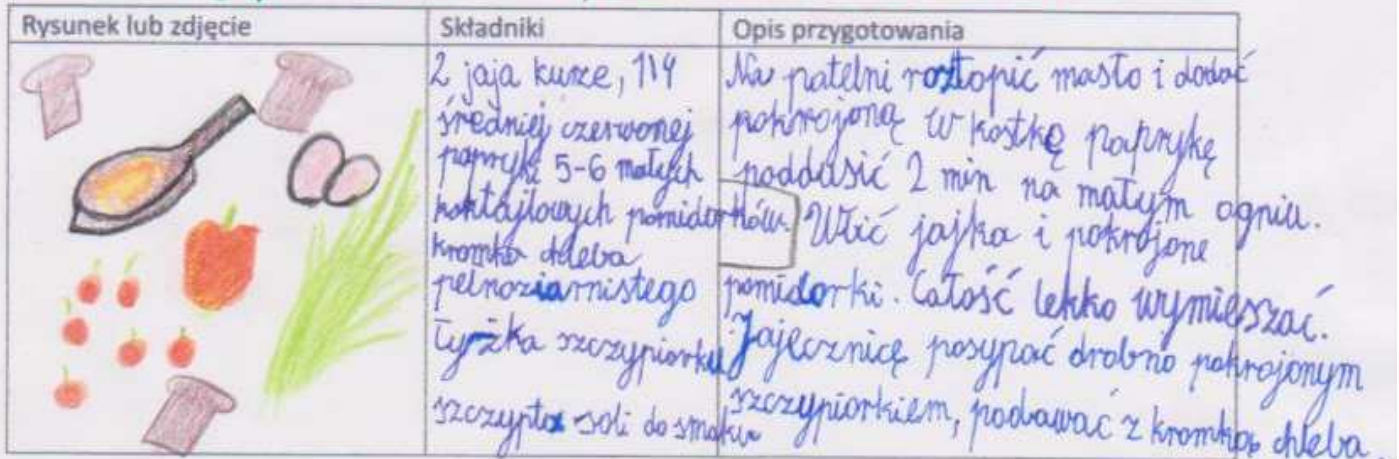 Rysunek lub zdjęcie
Składniki
2 jaja kurze, 1/4
średniej czerwonej
papryki 5-6 małych
koktajlowych pomidorków.
kromka chleba
pełnoziarnistego
Łyżka szczypiorku
szczypta soli do smaku
Opis przygotowania
Na patelni roztopić masło i dodać
pokrojoną w kostkę paprykę
poddusić 2 min na małym ogniu.
Wbić jajka i pokrojone
pomidorki. Całość lekko wymieszać.
Jajecznicę posypać drobno pokrojonym
szczypiorkiem, podawać z kromką chleba.